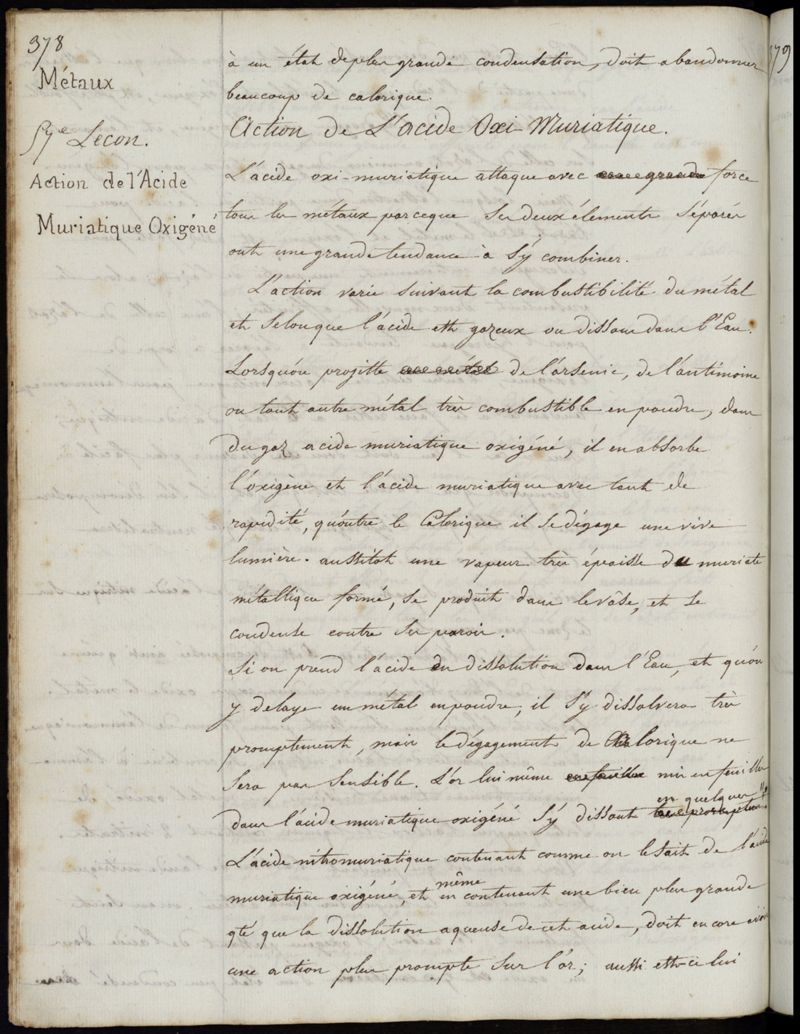 378
Métaux
57e Lecon.
Action de l'Acide
Muriatique Oxigéné
à un état de plus grande condensation, doit abandonner
beaucoup de calorique.
Action de L'acide Oxi Muriatique.
L'acide oxi-muriatique attaque avec grande force
tous les métaux parceque ses deux élements séparés
ont une grande tendance à s'y combiner.
L'action varie suivant la combustibilité du métal
et selonque l'acide est gazeux ou dissous dans l'Eau.
Lorsqu'on projitte un métal de l'arsenic, de l'antimoine
ou tout autre métal très combustible en poudre, dans
du gaz acide muriatique oxigéné, il en absorbe
l'oxigène et l'acide muriatique avec tant de
rapidité, qu'outre le Calorique il se dégage une vive
lumière. aussitôt une vapeur très épaisse du muriate
métallique formé, se produit dans le vase, et se
condense contre ses parois.
Si on prend l'acide en dissolution dans l'Eau, et qu'on
y delaye un métal en poudre, il s'y dissolvera très
promptement, mais le dégagement de Calorique ne
sera pas sensible. L'or lui même en feuilles mis en feuilles
en quelques
dans l'acide muriatique oxigéné s'y dissout très promptement
L'acide nitromuriatique contenant comme on le sait de l'acide
même
muriatique oxigéné, et en contenant une bien plus grande
qté que la dissolution aqueuse de cet acide, doit encore avoir
une action plus prompte sur l'or; aussi est-ce lui
379